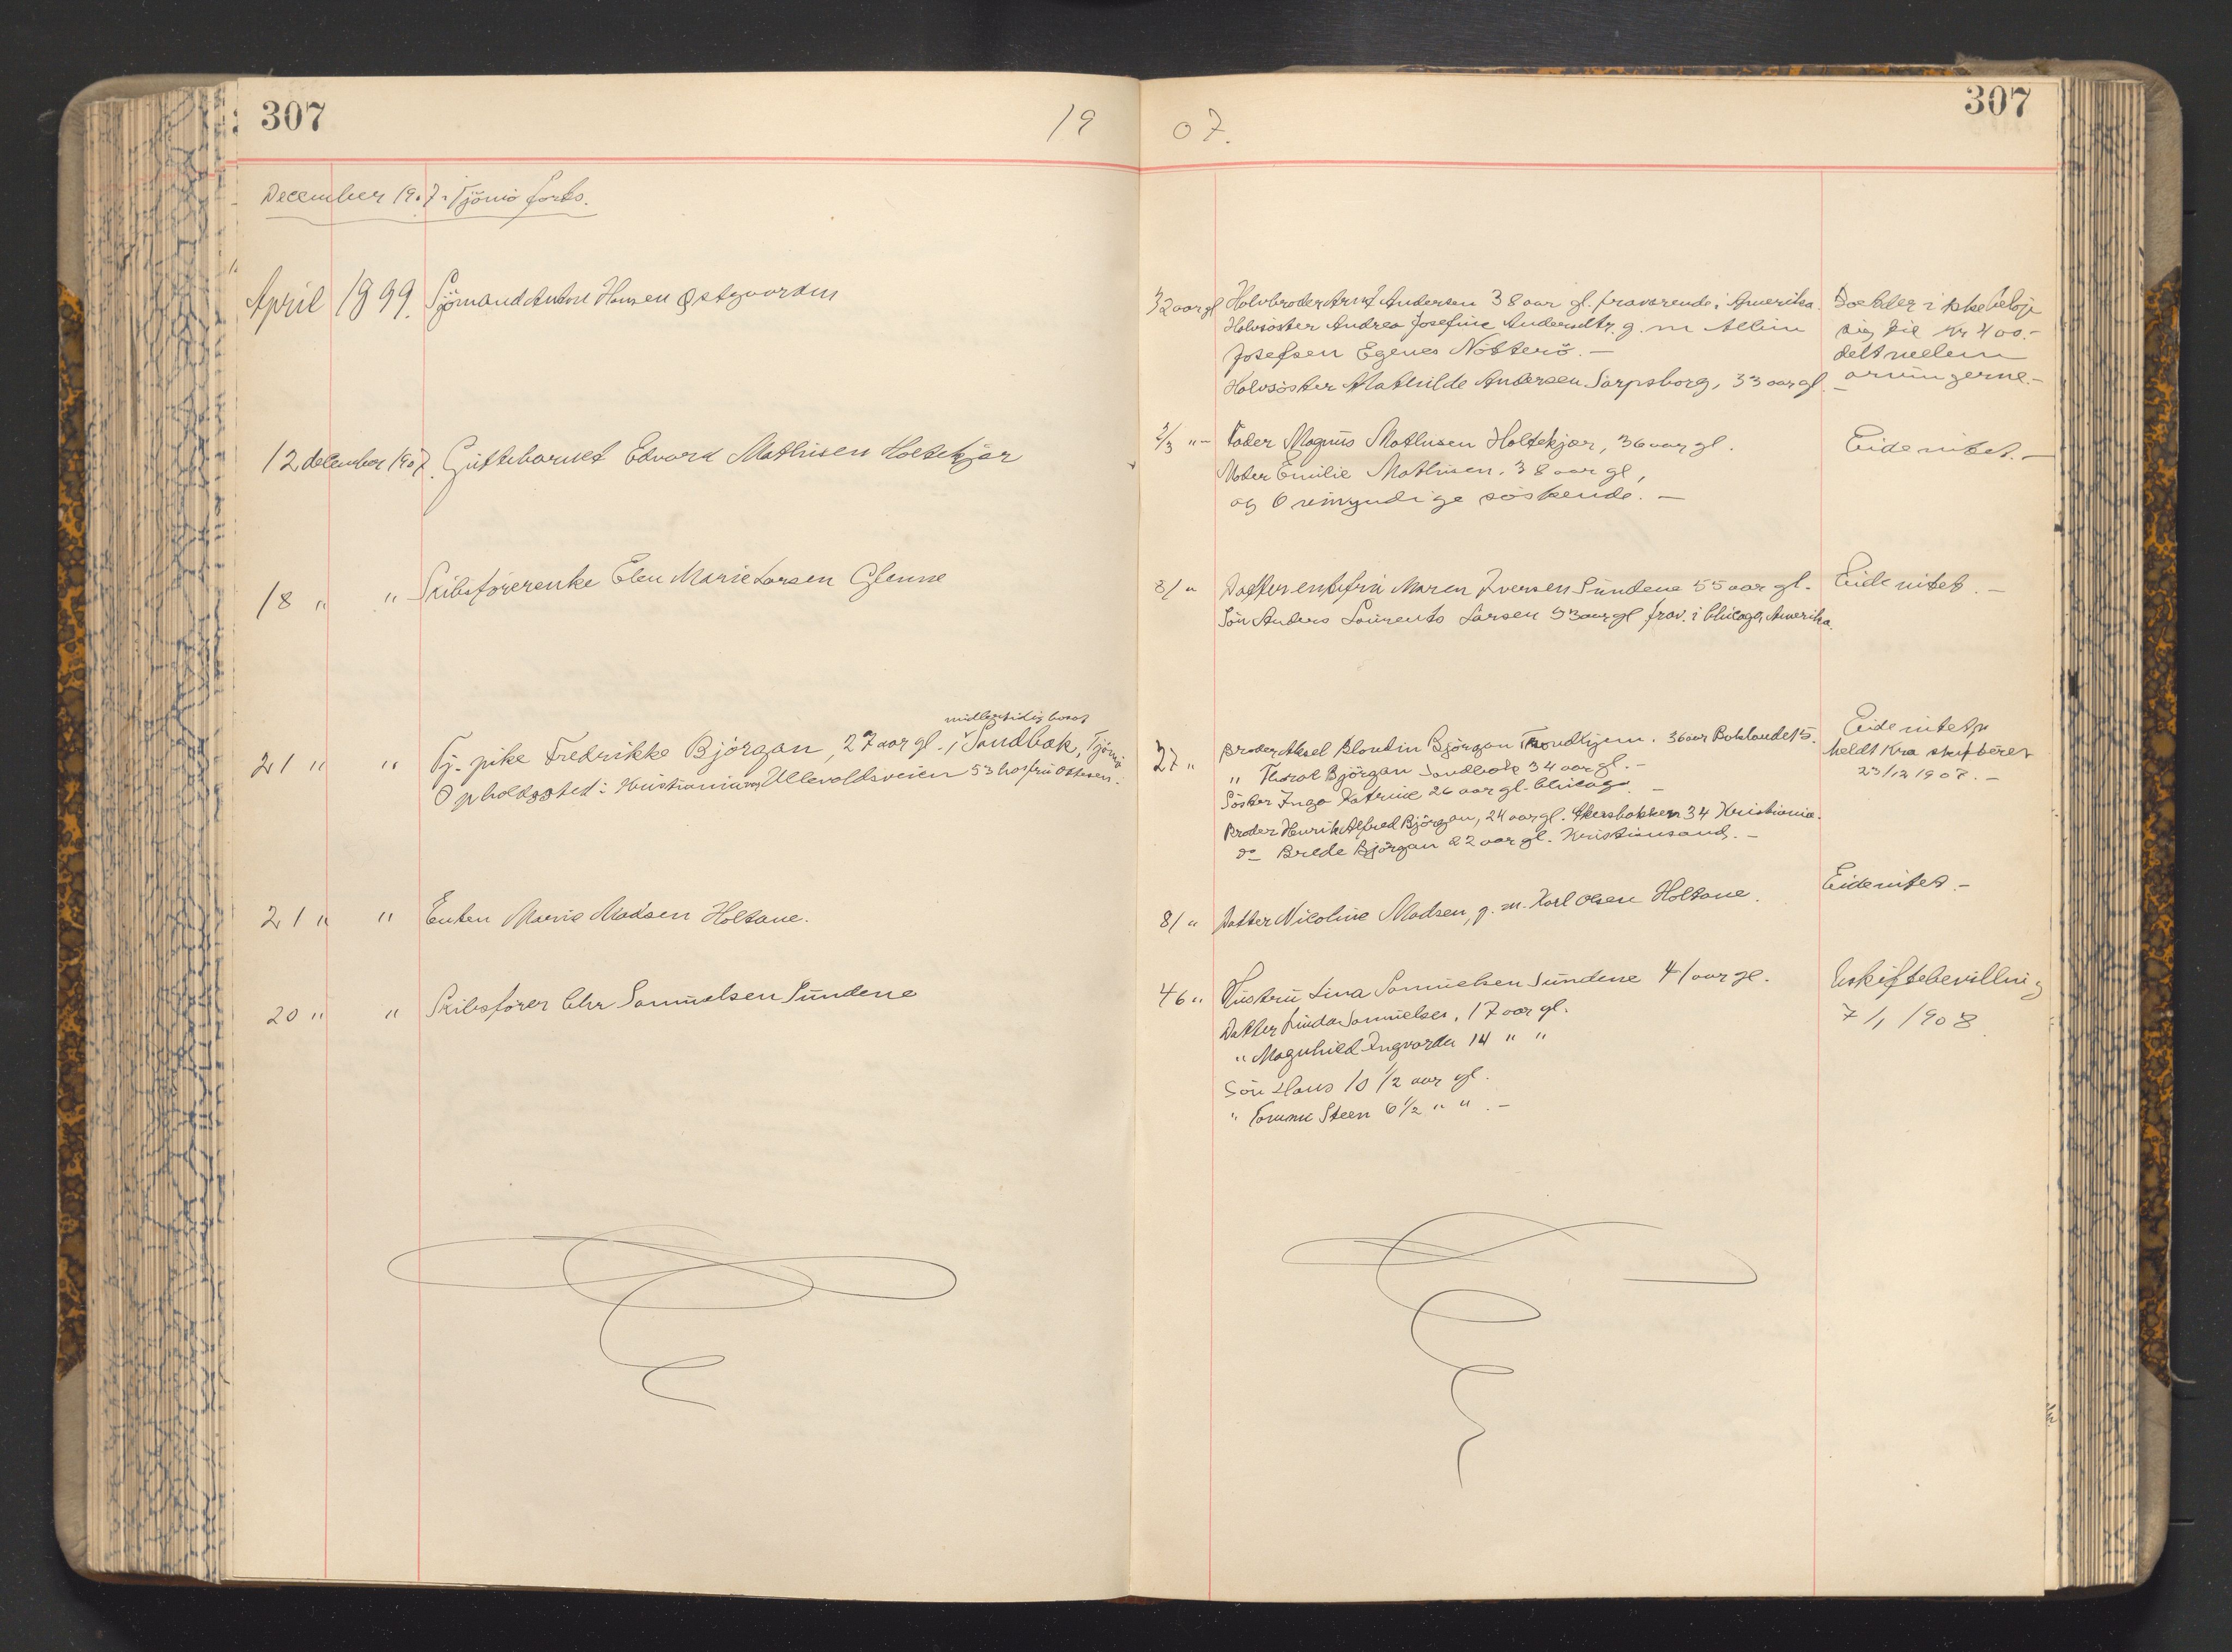 307
19
07.
307
December 1907. Tjömö forts.
April 1899. Sjömand Anton Hansen Østgaarden
32 aar gl
Halvbroder Arnt Andersen 38 aar gl. fraværende i Amerika.
Halvsöster Andrea Josefine Andersdtr. g. m
Josefsen Egenes Nötterö. —
Halvsöster Mathilde Andersen Sarpsborg, 33 aar gl. —
ikke beløp
sig til kr 400.-
delt mellem
arvingerne.-
12 december 1907. Guttebarnet Edvard Mathisen Holtekjær
2/3 " -
Fader Magnus Mathisen Holtekjær, 36 aar gl.
Moder Emilie Mathisen. 38 aar gl,
og 6 umyndige söskende. —
Eide intet. —
18 " " Skibsförerenke Elen Marie Larsen Glenne
81 "
Datter enkefru Maren Iversen Sundene 55 aar gl.
Sön Anders Laurents Larsen 53 aar gl frav. i Chicago, Amerika.
Eide intet. —
midlertidig bosat
21 " " Tj. pike Fredrikke Björgan, 27 aar gl. i Sandbæk, Tjömö
Opholdssted: Kristiania Ullevoldsveien 53 hos fru Ottesen.
27 "
Broder Aksel Blondin Björgan Trondhjem. 36 aar Baklandet 5.
" Thoral Björgan Sandbæk 34 aar gl. -
Söster Inga Katrine 26 aar gl. Chicago. —
Broder Henrik Alfred Björgan, 24 aar gl. Akersbakken 34 Kristiania.
do Brede Björgan 22 aar gl. Kristiansand. —
Eide intet
meldt Kra skifteret
23/12 1907. —
21 " " Enken Marie Madsen Holtane.
81 "
Datter Nicoline Madsen, g. m. Karl Olsen Holtane.
Eide intet. -
20 " " Skibsförer Chr Samuelsen Sundene
46 "
Hustru Lina Samuelsen Sundene 41 aar gl.
Datter Linda Samuelsen, 17 aar gl.
" Magnhild Ingvarda 14 " "
Sön Hans 10 1/2 aar gl.
" Steen 6 1/2 " " . —
Uskiftebevilling
7/1 1908